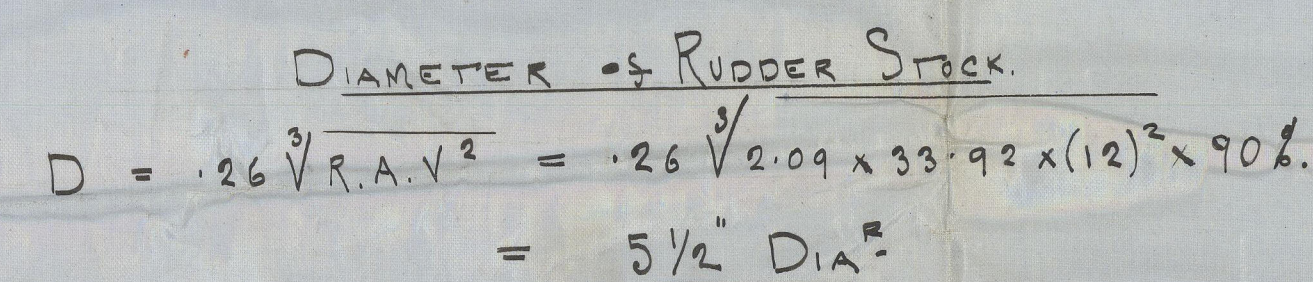 DIAMETER of RUDDER STOCK.
D = .26 ∛R.A.V² = .26 ∛2.09 x 33.92 x (12)² x 90%.
= 5 1/2" DIAᴿ.